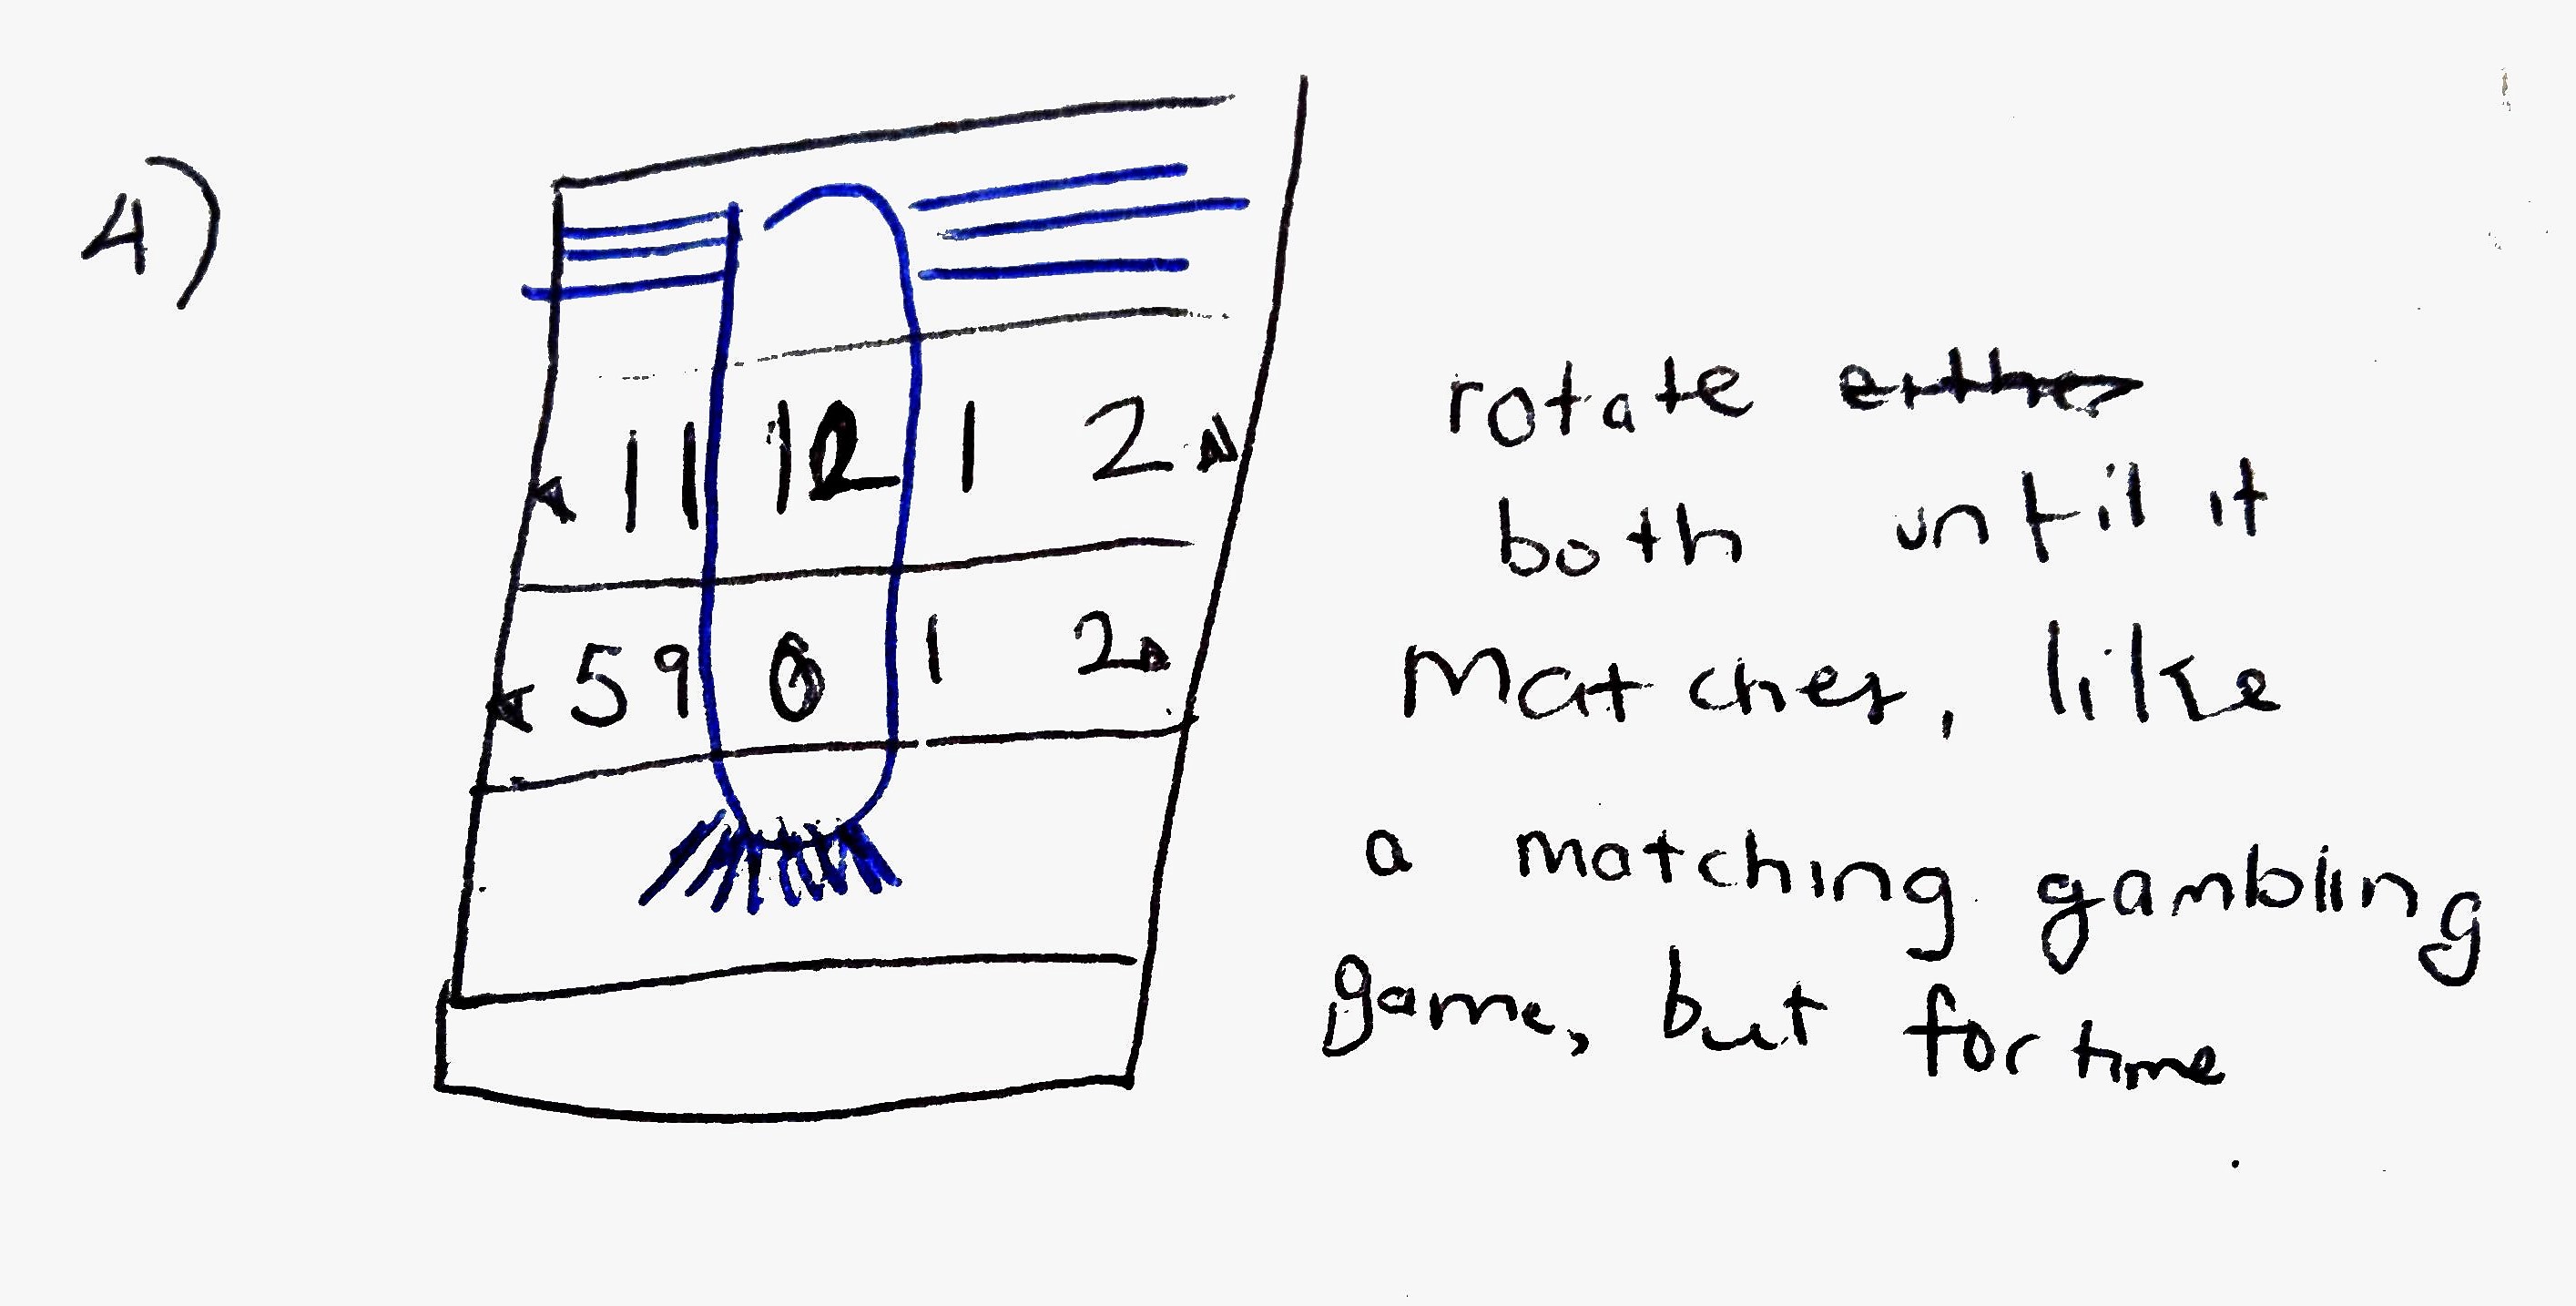 4)
11 12 1 2
59 0 1 2
rotate
both until it
matches, like
a matching gambling
game, but for time